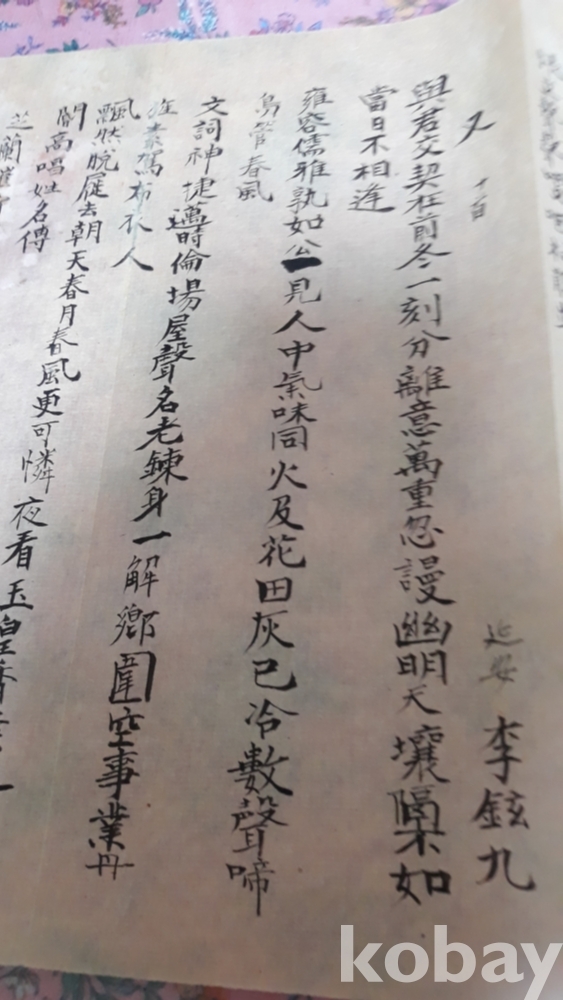 又 十首
延安 李鉉九
與君交契在前冬一刻分離意萬重忽謾幽明天壤隔不如
當日不相逢
雍容儒雅孰如公一見人中氣味同火及花田灰已冷數聲啼
鳥管春風
文詞神捷邁時倫場屋聲名老鍊身一解鄉圍空事業丹
旌素駕布衣人
飄然脫屣去朝天春月春風更可憐夜看玉皇
閣高唱姓名傳
芝蘭
kobay